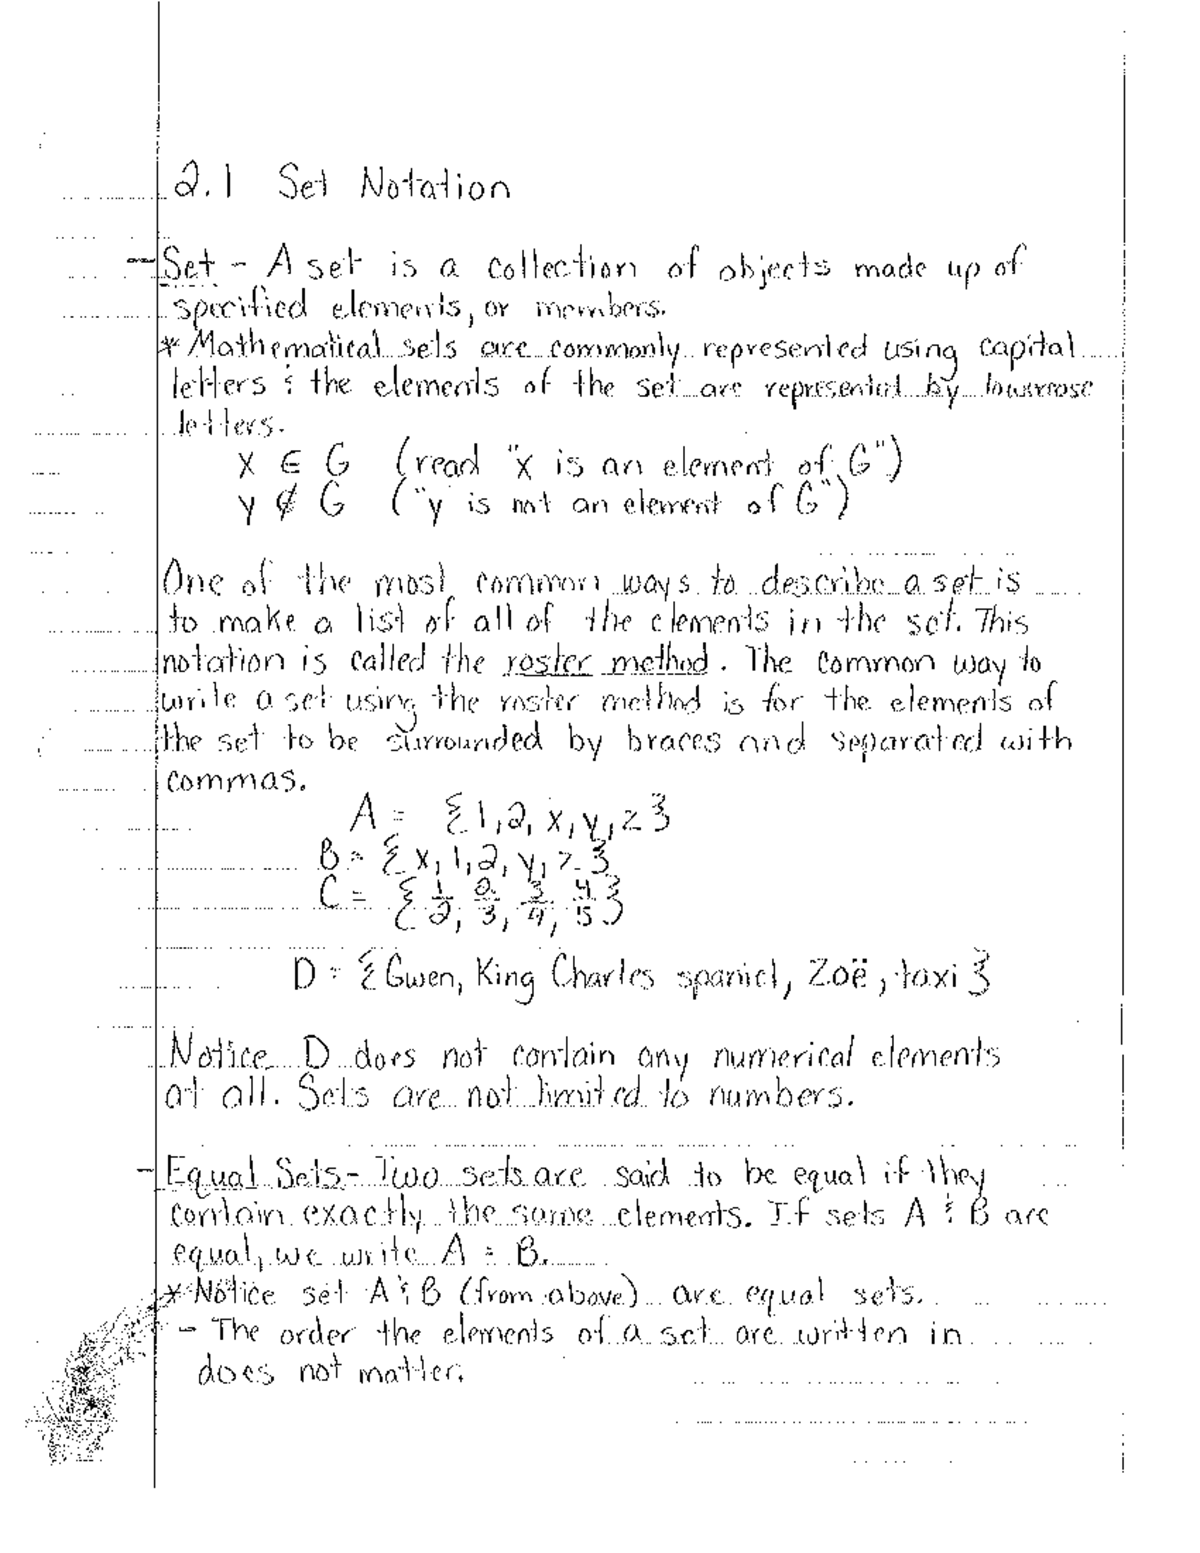 2.1 Set Notation
- Set - A set is a collection of objects made up of
specified elements, or members.
* Mathematical sets are commonly represented using capital
letters & the elements of the set are represented by lowercase
letters.
x ∈ G (read "x is an element of G")
y ∉ G ("y is not an element of G")
One of the most common ways to describe a set is
to make a list of all of the elements in the set. This
notation is called the roster method. The common way to
write a set using the roster method is for the elements of
the set to be surrounded by braces and separated with
commas.
A = {1, 2, x, y, z}
B = {x, 1, 2, y, z}
C = {1/2, 2/3, 3/4, 4/5}
D = {Gwen, King Charles spaniel, Zoë, taxi}
Notice D does not contain any numerical elements
at all. Sets are not limited to numbers.
- Equal Sets - Two sets are said to be equal if they
contain exactly the same elements. If sets A & B are
equal, we write A = B.
* Notice set A & B (from above) are equal sets.
- The order the elements of a set are written in
does not matter.